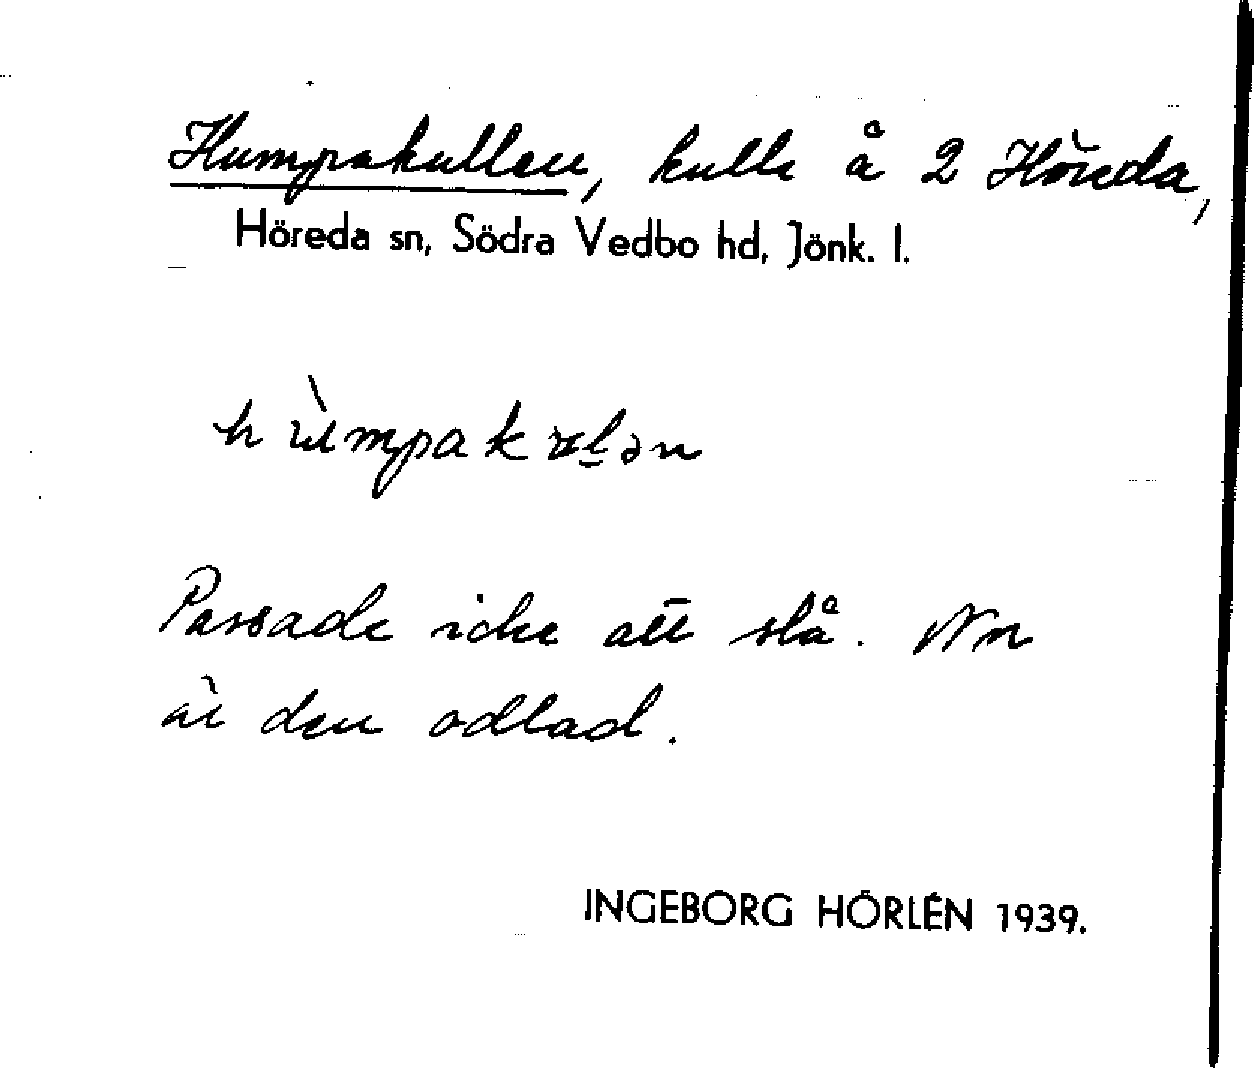 Humpakullen, kulle å 2 Höreda,
Höreda sn, Södra Vedbo hd, Jönk. l.
Passade icke att slå. Nu
är den odlad.
INGEBORG HÖRLÉN 1939.